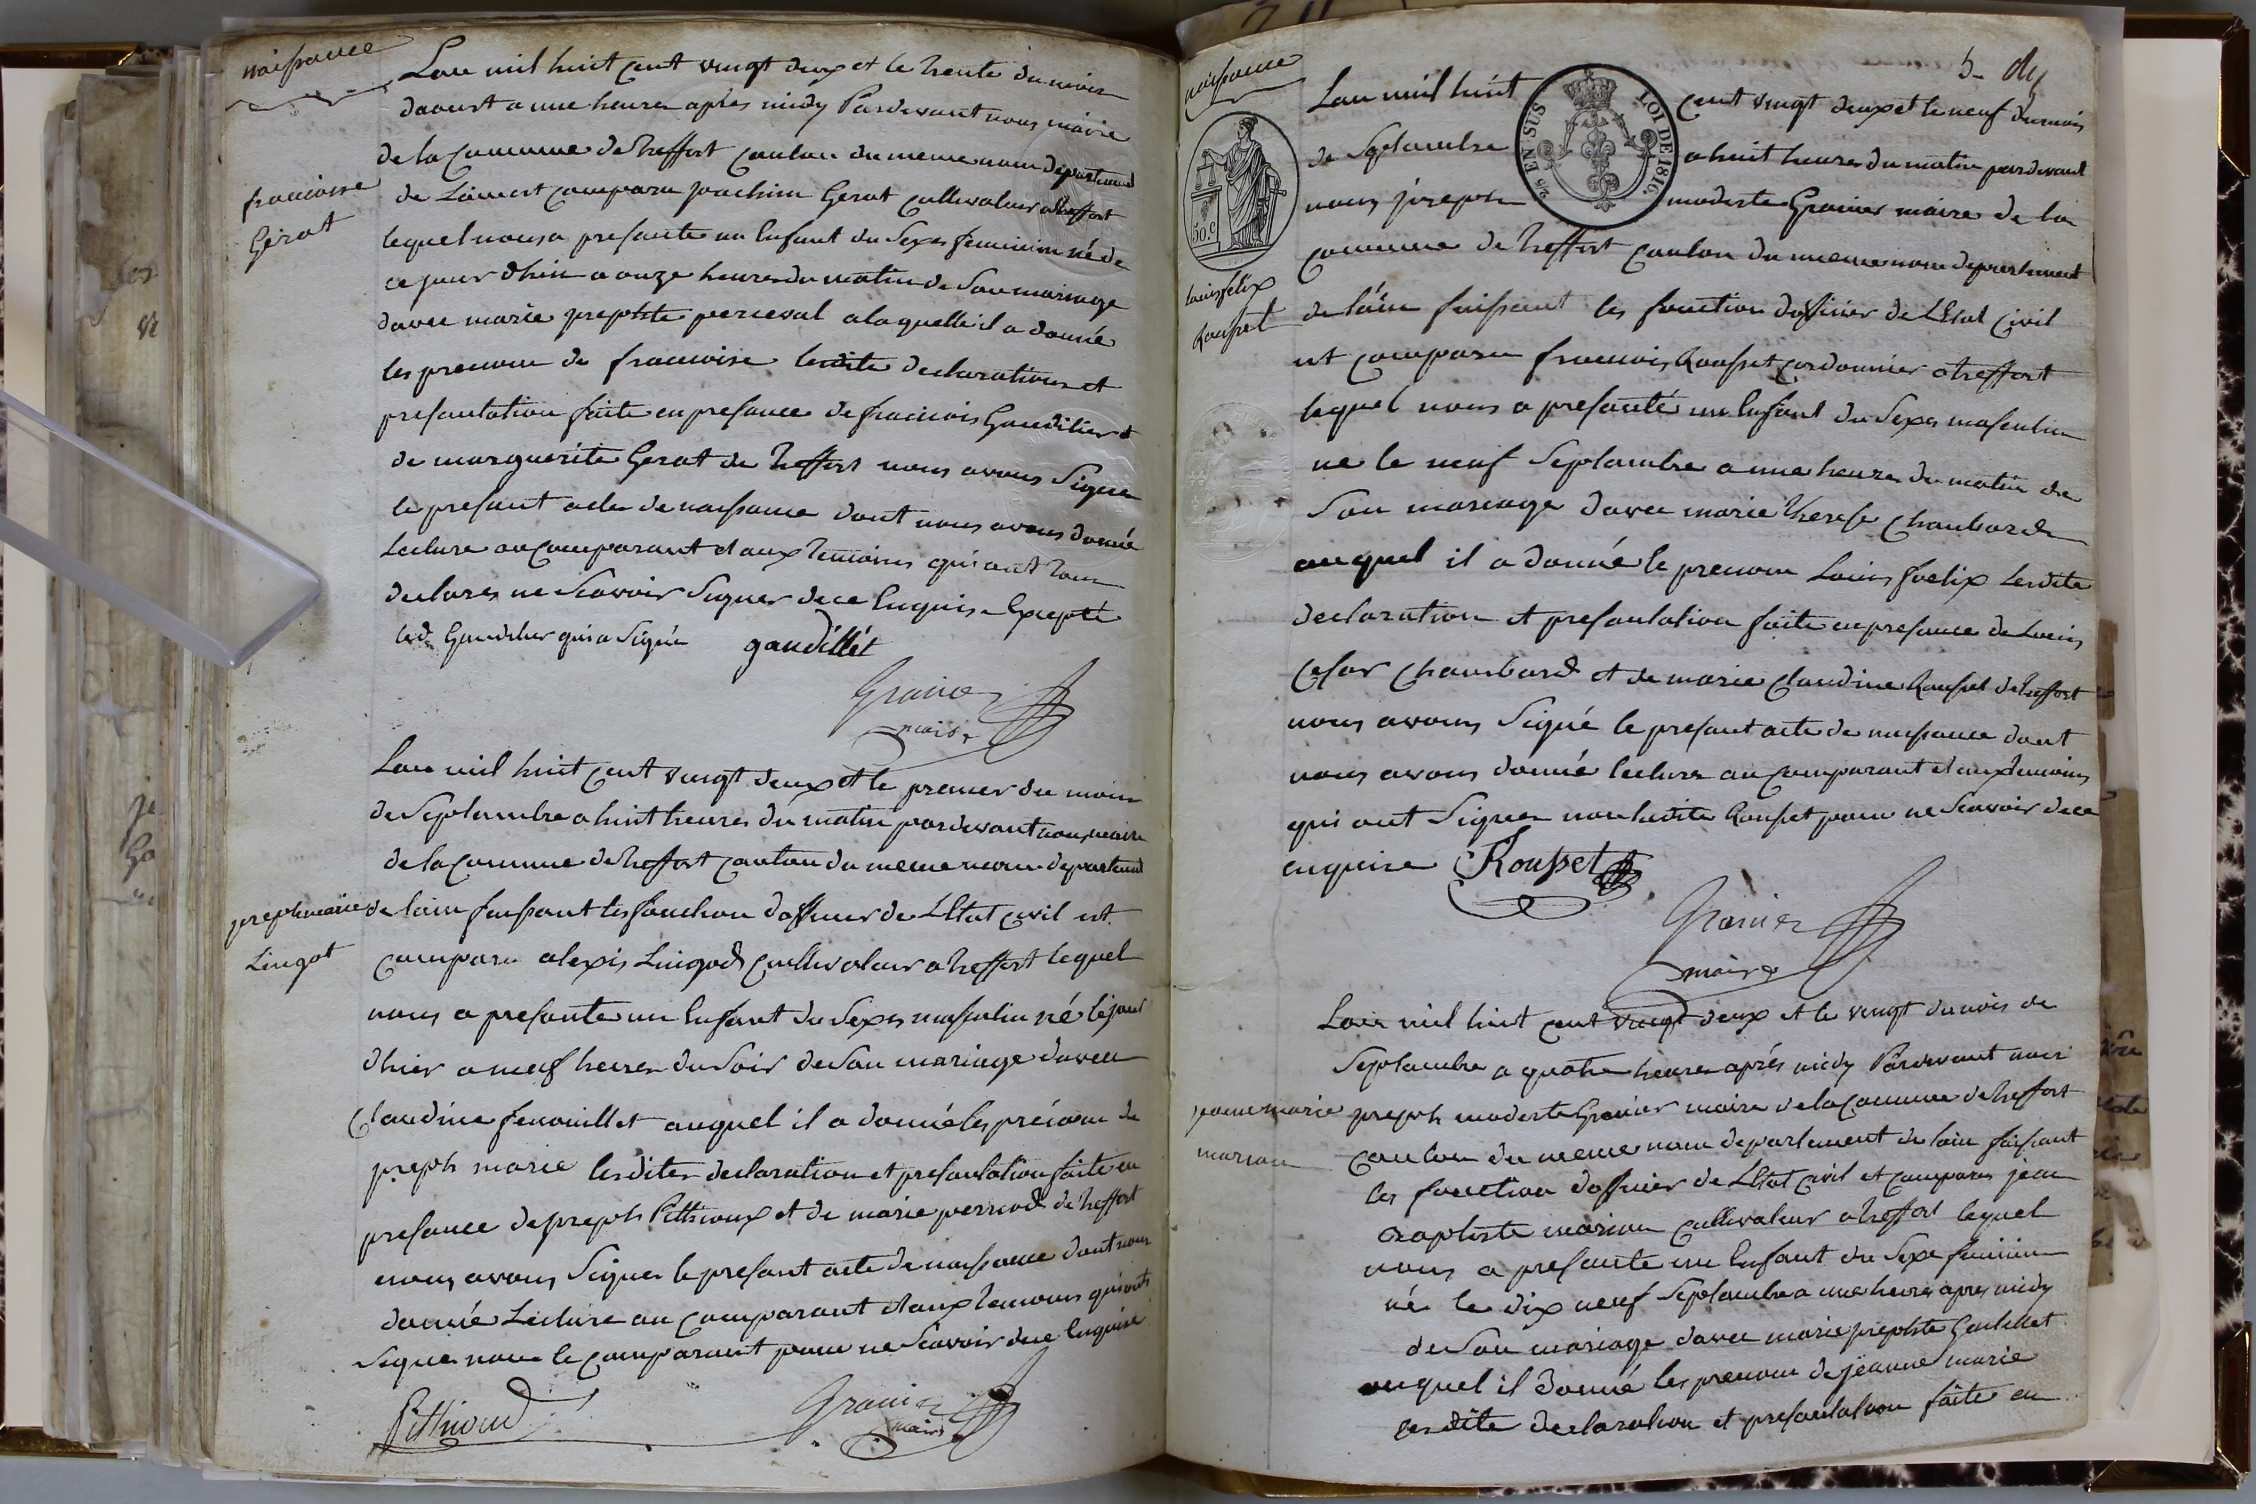 naissance
Lan mil huit cent vingt deux et le trente du mois
daoust a une heures après midy Pardevant nous maire
de la Commune de treffort canton du meme nom departement
francoise
Gerat
de Lain est comparu joachim Gerat cultivateur a treffort
lequel nous a presante un Enfant du Sexes feminim né de
ce jour dhui a onze heures du matin de Son mariage
davec marie josephte perceval a laquelle il a donné
les prenom de francoise lesdite declarations et
presantation faite en presance de francois Gaudilier et
de marguerite Gerat de treffort nous avons Signer
le presant acte de naissance dont nous avons donné
Lecture au Comparant et aux temoins qui ont tous
declares ne Scavoir Signer de ce Enquis Excepté
led. Gaudilier qui a Signé gaudillét
Granier
maire
Lan mil huit cent vingt deux et le premier du mois
de Septambre a huit heures du matin pardevant nous maire
de la Commune de treffort canton du meme nom departement
joseph marie
Lingot
de lain faissant les fonction doffisier de LEtat Civil est
Comparu alexis Lingod Cultivateur a treffort lequel
nous a presante un Enfant du Sexes masculin né le jour
dhier a neuf heures du Soir de Son mariage davec
Claudine fenouillet auquel il a donné les prénom de
joseph marie lesdites declaration et presantation faite en
presance de joseph Pithioux et de marie perrod de treffort
nous avons Signer le presant acte de naissance dont nous
donné Lecture au Comparant et aux temoins qui ont
Signer non le Comparant pour ne Scavoir de ce Enquise
Pithioud Granier
maire
5-
naissance
Lan mil huit cent vingt deux et le neuf du mois
de Septambre a huit heures du matin pardevant
nous joseph modeste Granier maire de la
EN SUS
LOI DE 1816.
50.c
commune de treffort canton du meme nom departement
louis felix
Rousset
de láin faissant les fonction doffisier de LEtat Civil
est comparu francois Rousset cordonnier a treffort
lequel nous a presanté un Enfant du Sexes masculin
ne le neuf Septambre a une heures du matin de
Son mariage davec marie therese Chambard
auquel il a donné le prenom Louis foelix Lesdite
declaration et presantation faite en presance de Louis
Cesar Chambard et de marie Claudine Rousset de treffort
nous avons Signé le presant acte de naissance dont
nous avons donné lecture au comparant et aux temoins
qui ont Signer non ladite Rousset pour ne Scavoir de ce
enquise Rousset
Granier
maire
Lan mil huit cent vingt deux et le vingt du mois de
Septambre a quatre heures aprés midy Pardevant nous
jeanne marie
marion
joseph modeste Granier maire de la Commune de treffort
canton du meme nom departement de lain faissant
les fonction doffisier de LEtat Civil est Comparu jean
Baptiste marion cultivateur a treffort lequel
nous a presante un Enfant du Sexe feminim
né le dix neuf Septambre a une heures apres midy
de Son mariage davec marie josephte Gaillet
auquel il donné les prenom de jeanne marie
lesdite declaration et presantation faite en